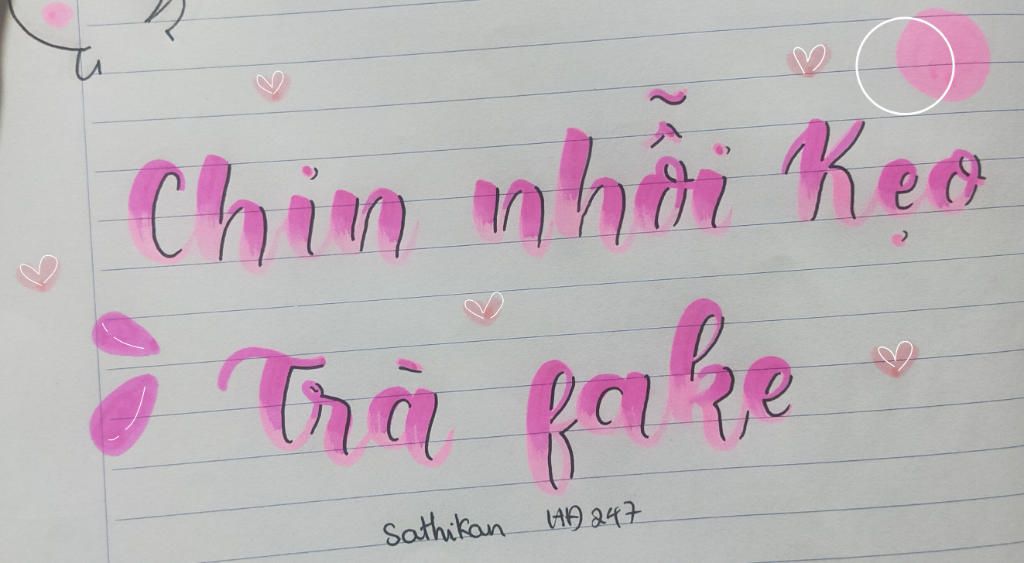 Chin nhỗi Kẹo
Trà fake
Sathikan 247